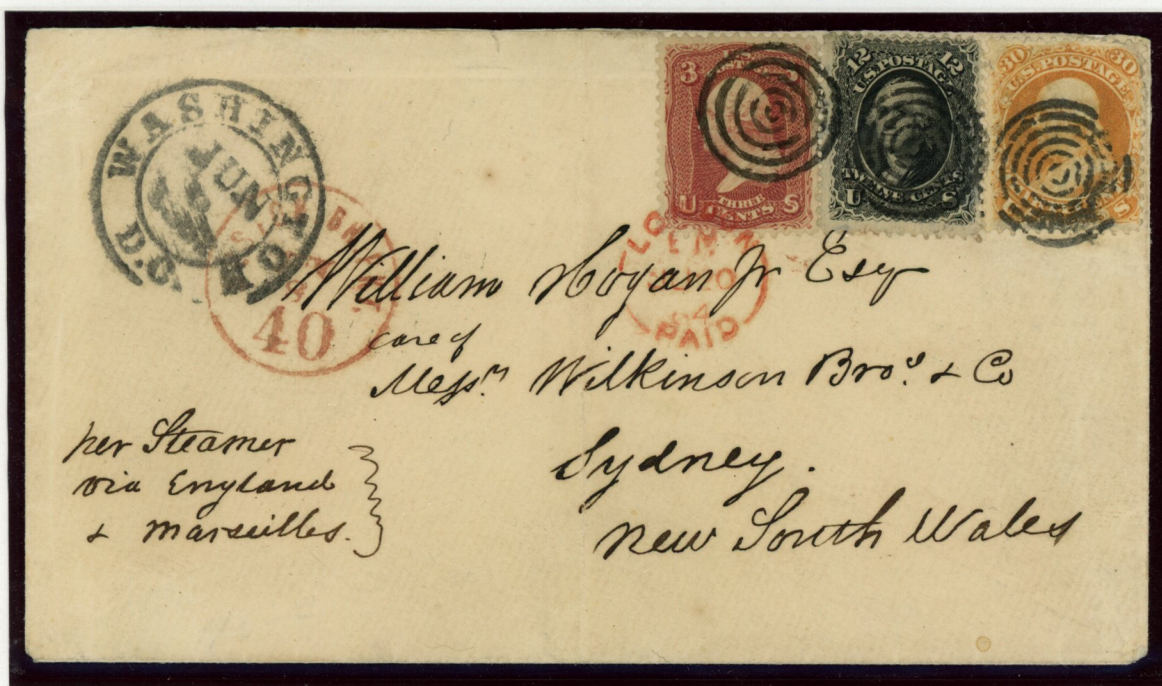 WASHINGTON
D.C.
JUN
40
3
THREE
CENTS
U S
12 12
U.S. POSTAGE
TWELVE CENTS
U S
30 30
U.S. POSTAGE
S
EM
PAID
William Hogan Jr Esq
care of
Messrs Wilkinson Bros. & Co
Sydney.
New South Wales
per Steamer
via England
& Marseilles.